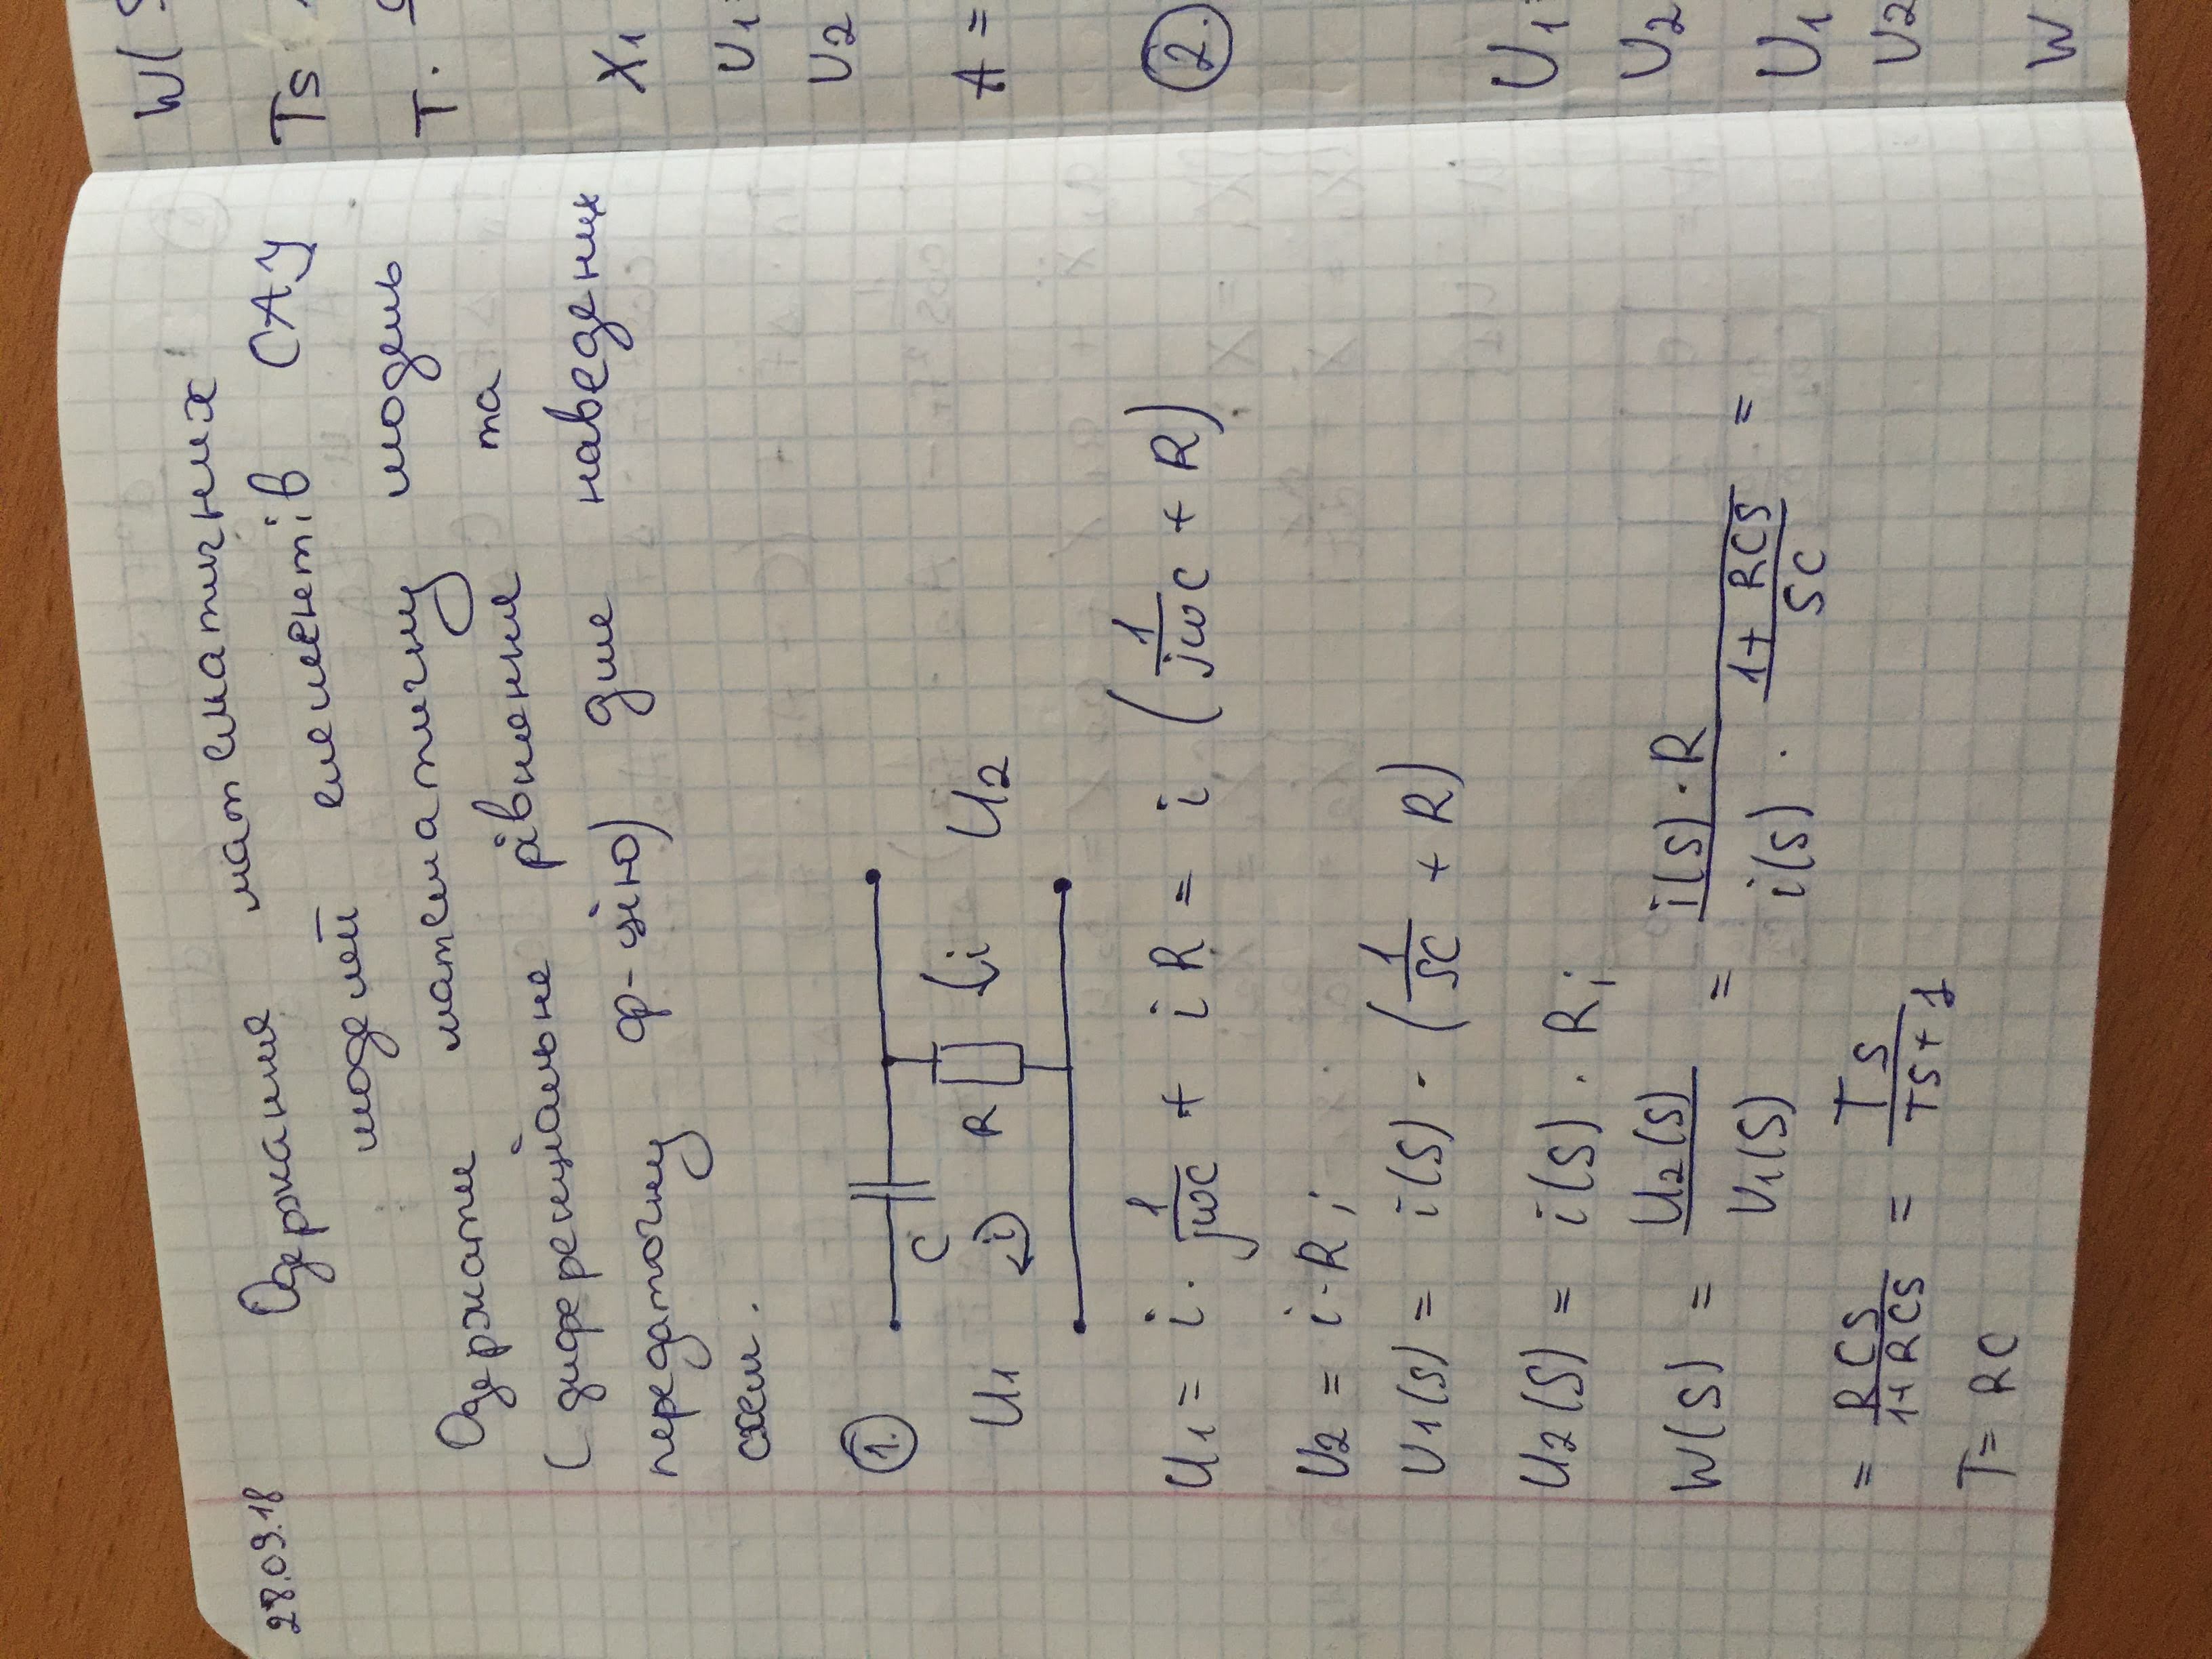 28.09.18
Одержання математичних
моделей елементів САУ
Одержати математичну модель
(диференціальне рівняння та
передаточну ф-цію) для наведених
схем.
1.
C
U1 i R i U2
U1 = i · 1/jωC + iR = i (1/jωC + R)
U2 = i · R;
U1(S) = i(S) · (1/SC + R)
U2(S) = i(S) · R;
W(S) = U2(S)/U1(S) = i(S) · R / i(S) · 1+RCS/SC =
= RCS/1+RCS = TS/TS+1
T = RC
W(
Ts
T.
X1
U1
U2
A =
2.
U1
U2
U1
U2
W